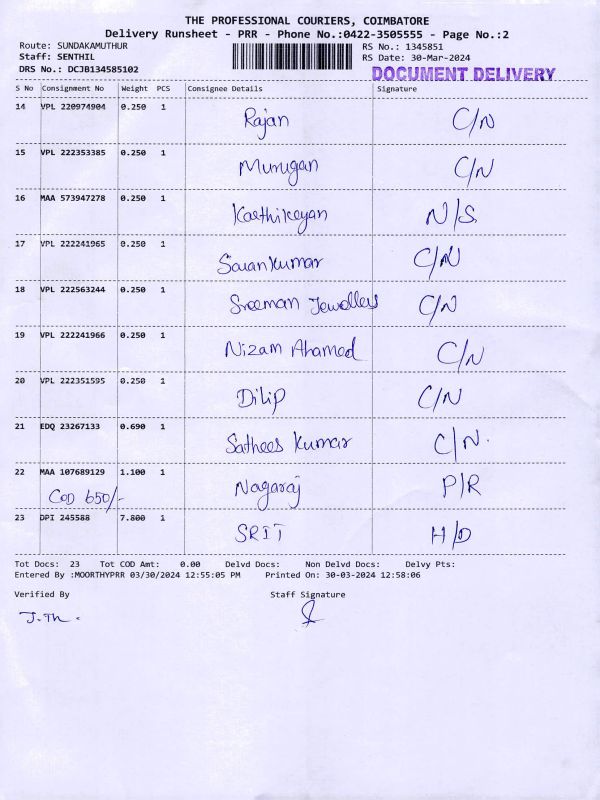 THE PROFESSIONAL COURIERS, COIMBATORE
Delivery Runsheet - PRR - Phone No.:0422-3505555 - Page No.:2
Route: SUNDAKAMUTHUR RS No.: 1345851
Staff: SENTHIL RS Date: 30-Mar-2024
DRS No.: DCJB134585102 DOCUMENT DELIVERY
S No Consignment No Weight PCS Consignee Details Signature
14 VPL 220974904 0.250 1 Rajan C/N
15 VPL 222353385 0.250 1 Murugan C/N
16 MAA 573947278 0.250 1 Karthikeyan N/S
17 VPL 222241965 0.250 1 Sarankumar C/N
18 VPL 222563244 0.250 1 Sreeman Jewellers C/N
19 VPL 222241966 0.250 1 Nizam Ahamed C/N
20 VPL 222351595 0.250 1 Dilip C/N
21 EDQ 23267133 0.690 1 Sathees Kumar C/N.
22 MAA 107689129 1.100 1 Nagaraj P/R
COD 650/-
23 DPI 245588 7.800 1 SRIT H/D
Tot Docs: 23 Tot COD Amt: 0.00 Delvd Docs: Non Delvd Docs: Delvy Pts:
Entered By :MOORTHYPRR 03/30/2024 12:55:05 PM Printed On: 30-03-2024 12:58:06
Verified By Staff Signature